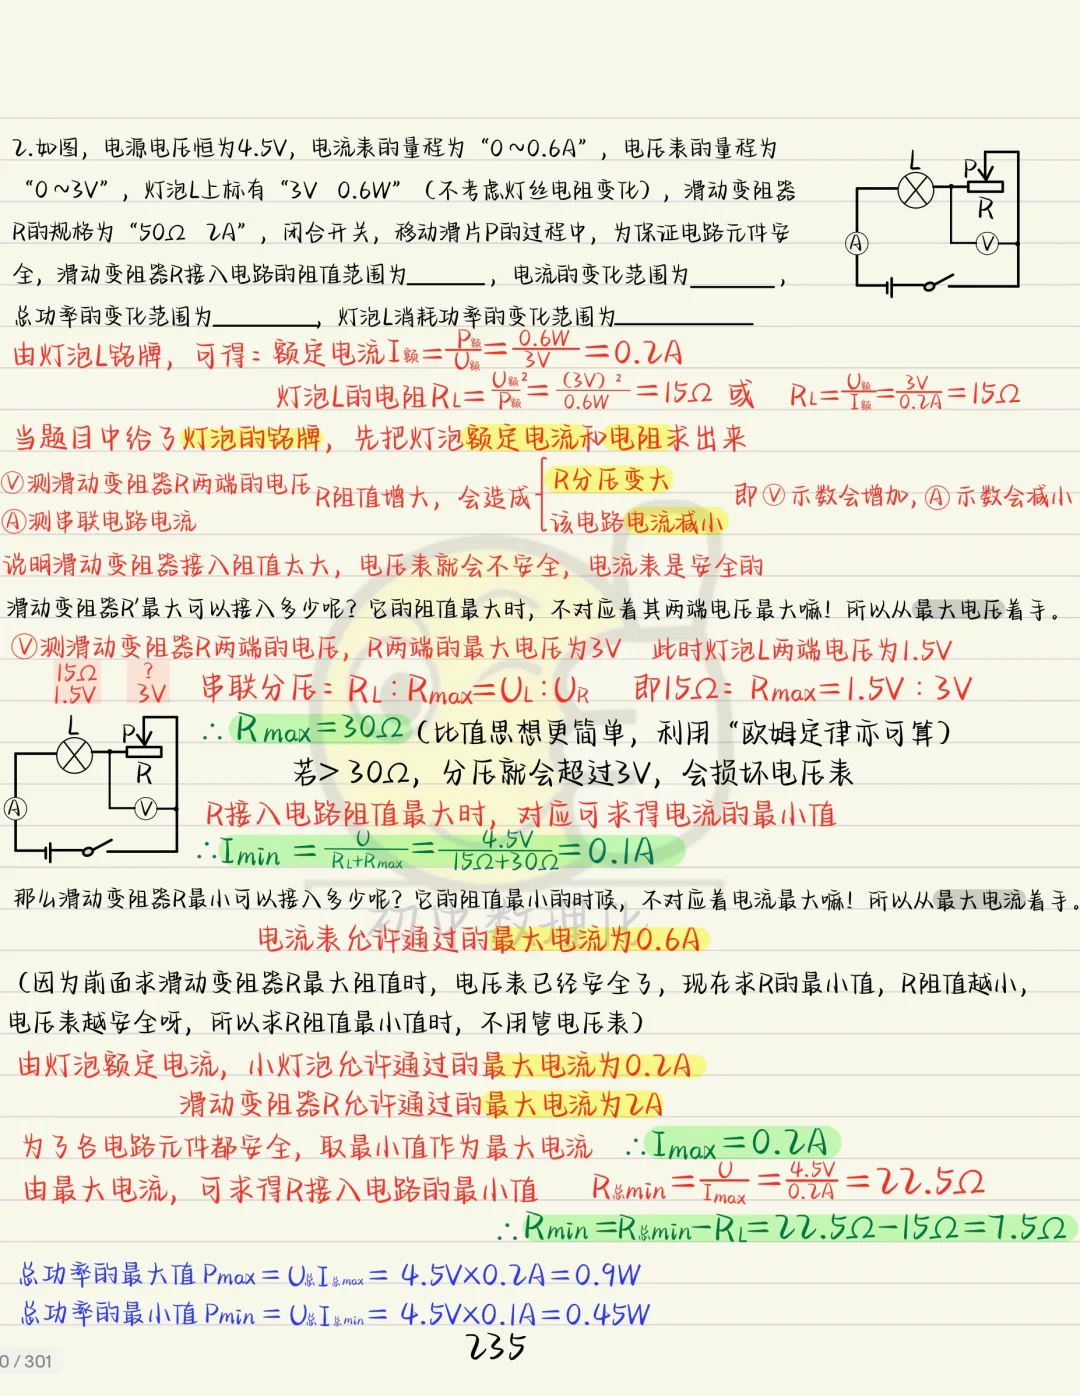 2.如图，电源电压恒为4.5V，电流表的量程为“0~0.6A”，电压表的量程为
“0~3V”，灯泡L上标有“3V 0.6W”（不考虑灯丝电阻变化），滑动变阻器
R的规格为“50Ω 2A”，闭合开关，移动滑片P的过程中，为保证电路元件安
全，滑动变阻器R接入电路的阻值范围为______，电流的变化范围为______，
总功率的变化范围为________，灯泡L消耗功率的变化范围为__________
L P R A V
由灯泡L铭牌，可得：额定电流I额=P额/U额=0.6W/3V=0.2A
灯泡L的电阻RL=U额²/P额=(3V)²/0.6W=15Ω 或 RL=U额/I额=3V/0.2A=15Ω
当题目中给了灯泡的铭牌，先把灯泡额定电流和电阻求出来
Ⓥ测滑动变阻器R两端的电压
Ⓐ测串联电路电流
R阻值增大，会造成{
R分压变大
该电路电流减小
即Ⓥ示数会增加，Ⓐ示数会减小
说明滑动变阻器接入阻值太大，电压表就会不安全，电流表是安全的
滑动变阻器R'最大可以接入多少呢？它的阻值最大时，不对应着其两端电压最大嘛！所以从最大电压着手。
Ⓥ测滑动变阻器R两端的电压，R两端的最大电压为3V 此时灯泡L两端电压为1.5V
15Ω ?
1.5V 3V
串联分压：RL：Rmax=UL：UR 即15Ω：Rmax=1.5V：3V
L P R A V
∴Rmax=30Ω（比值思想更简单，利用“欧姆定律亦可算）
若>30Ω，分压就会超过3V，会损坏电压表
R接入电路阻值最大时，对应可求得电流的最小值
∴Imin=U/(RL+Rmax)=4.5V/(15Ω+30Ω)=0.1A
那么滑动变阻器R最小可以接入多少呢？它的阻值最小的时候，不对应着电流最大嘛！所以从最大电流着手。
初中数理化
电流表允许通过的最大电流为0.6A
（因为前面求滑动变阻器R最大阻值时，电压表已经安全了，现在求R的最小值，R阻值越小，
电压表越安全呀，所以求R阻值最小值时，不用管电压表）
由灯泡额定电流，小灯泡允许通过的最大电流为0.2A
滑动变阻器R允许通过的最大电流为2A
为了各电路元件都安全，取最小值作为最大电流 ∴Imax=0.2A
由最大电流，可求得R接入电路的最小值 R总min=U/Imax=4.5V/0.2A=22.5Ω
∴Rmin=R总min-RL=22.5Ω-15Ω=7.5Ω
总功率的最大值Pmax=U总I总max=4.5V×0.2A=0.9W
总功率的最小值Pmin=U总I总min=4.5V×0.1A=0.45W
235
0/301